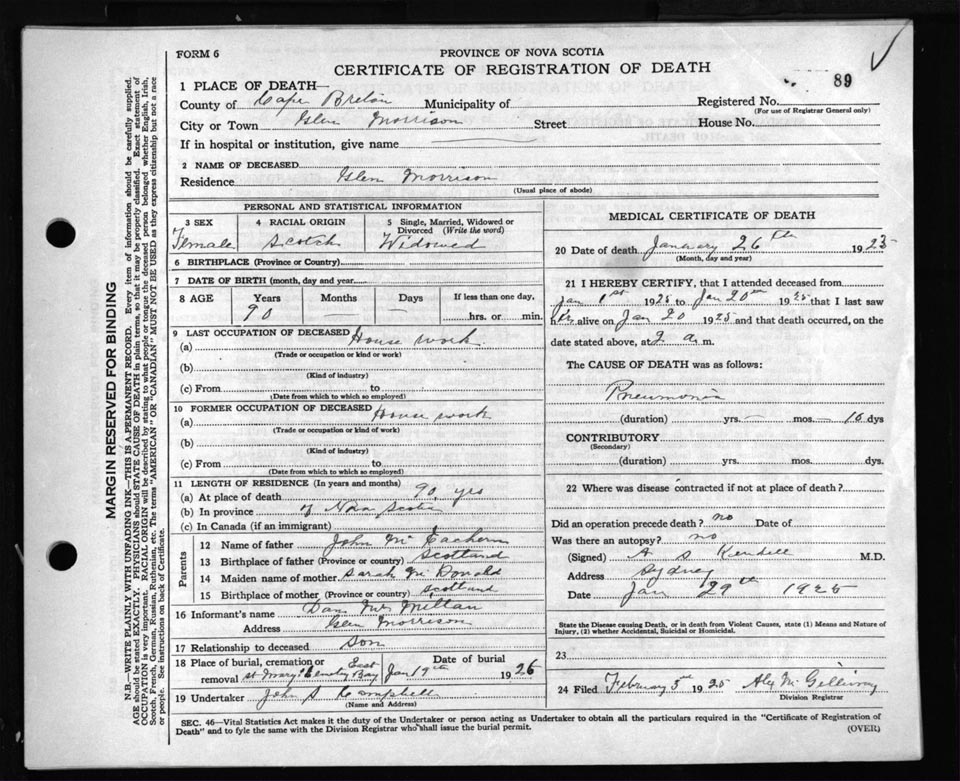 FORM 6
PROVINCE OF NOVA SCOTIA
CERTIFICATE OF REGISTRATION OF DEATH
89
1 PLACE OF DEATH—
County of Cape Breton Municipality of Registered No.
(For use of Registrar General only)
City or Town Glen Morrison Street House No.
If in hospital or institution, give name
2 NAME OF DECEASED
Residence Glen Morrison
(Usual place of abode)
PERSONAL AND STATISTICAL INFORMATION
3 SEX
Female
4 RACIAL ORIGIN
Scotch
5 Single, Married, Widowed or
Divorced (Write the word)
Widowed
6 BIRTHPLACE (Province or Country)
7 DATE OF BIRTH (month, day and year
8 AGE Years Months Days If less than one day,
90 — — hrs. or min.
9 LAST OCCUPATION OF DECEASED
(a) House work
(Trade or occupation or kind or work)
(b)
(Kind of industry)
(c) From to
(Date from which to which so employed)
10 FORMER OCCUPATION OF DECEASED
(a) House work
(Trade or occupation or kind of work)
(b)
(Kind of industry)
(c) From to
(Date from which to which so employed)
11 LENGTH OF RESIDENCE (In years and months)
(a) At place of death 90 yrs
(b) In province of Nova Scotia
(c) In Canada (if an immigrant)
Parents
12 Name of father John McEachern
13 Birthplace of father (Province or country) Scotland
14 Maiden name of mother Sarah McDonald
15 Birthplace of mother (Province or country) Scotland
16 Informant's name Dan McMillan
Address Glen Morrison
17 Relationship to deceased son
18 Place of burial, cremation or
removal St Marys Cemetery East Bay
Date of burial
Jan 1925
19 Undertaker John S Campbell
(Name and Address)
MEDICAL CERTIFICATE OF DEATH
20 Date of death January 26th 1925
(Month, day and year)
21 I HEREBY CERTIFY, that I attended deceased from
Jan 1st 1925 to Jan 20th 1925 that I last saw
her alive on Jan 20 1925 and that death occurred, on the
date stated above, at 2 a.m.
The CAUSE OF DEATH was as follows:
Pneumonia
(duration) yrs.— mos.— dys
CONTRIBUTORY
(Secondary)
(duration) yrs. mos. dys.
22 Where was disease contracted if not at place of death?
Did an operation precede death? no Date of
Was there an autopsy? no
(Signed) A S Kendall M.D.
Address Sydney
Date Jan 29th 1925
State the Disease causing Death, or in death from Violent Causes, state (1) Means and Nature of
Injury, (2) whether Accidental, Suicidal or Homicidal.
23
24 Filed February 3d 1925 Alex McGillivray
Division Registrar
SEC. 46—Vital Statistics Act makes it the duty of the Undertaker or person acting as Undertaker to obtain all the particulars required in the "Certificate of Registration of
Death" and to fyle the same with the Division Registrar who shall issue the burial permit.
(OVER)
MARGIN RESERVED FOR BINDING
N.B.—WRITE PLAINLY WITH UNFADING INK—THIS IS A PERMANENT RECORD. Every item of information should be carefully supplied.
AGE should be stated EXACTLY. PHYSICIANS should STATE CAUSE OF DEATH in plain terms, so that it may be properly classified. Exact statement of
OCCUPATION is very important. RACIAL ORIGIN will be described by stating to what people or tongue the deceased person belonged whether English, Irish,
Scotch, French, German, Russian, Ruthenian, etc. The terms "AMERICAN" or "CANADIAN" MUST NOT BE USED as they express citizenship but not a race
or people. See instructions on back of Certificate.